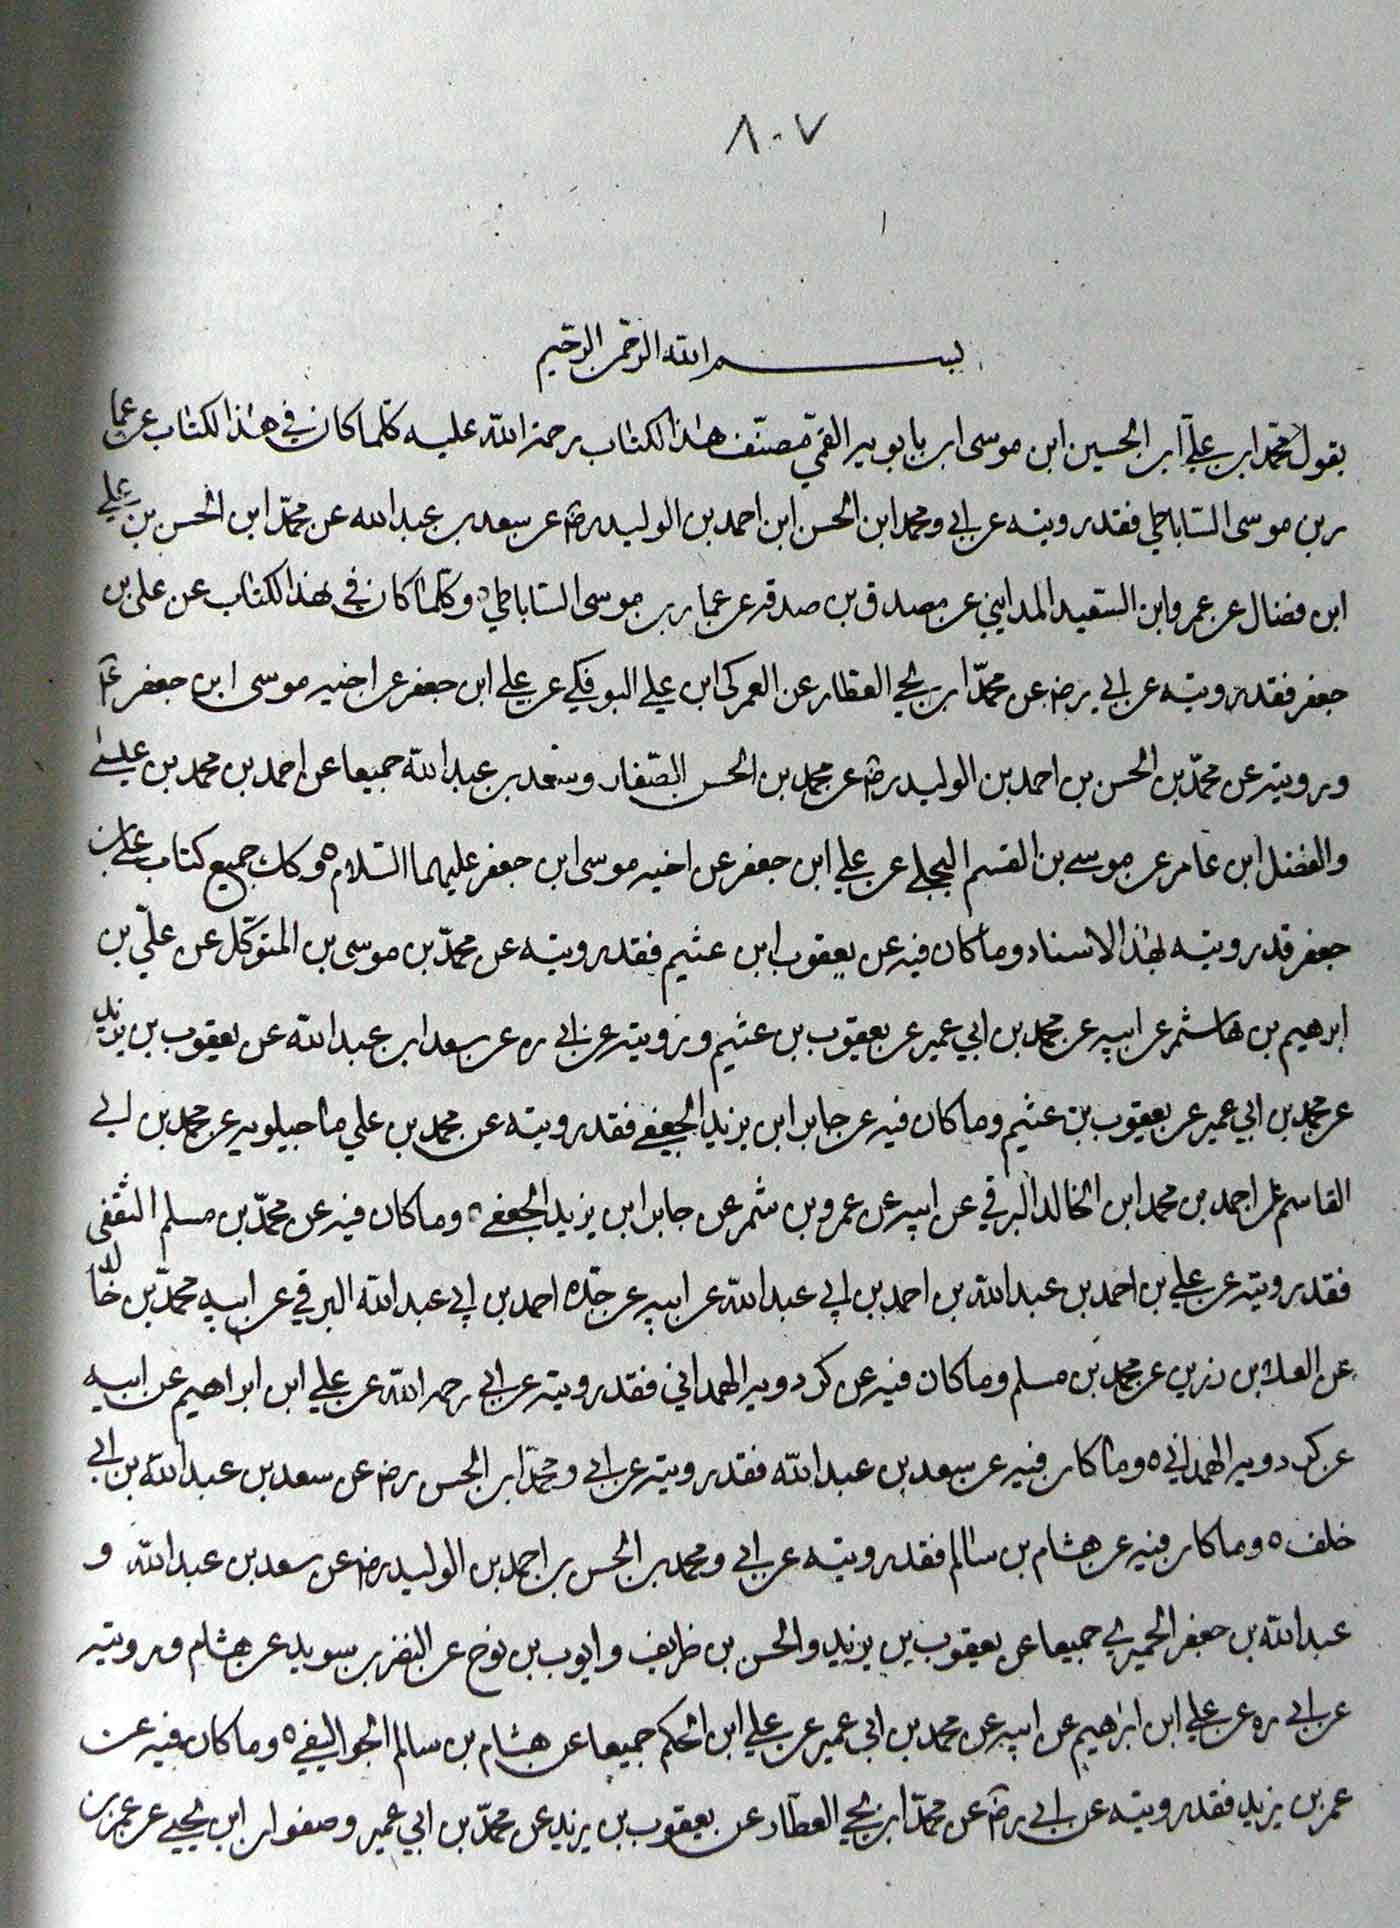 ٨٠٧
بسم الله الرحمن الرحيم
يقول محمد ابن علي ابن الحسين ابن موسى ابن بابويه القمي مصنف هذا الكتاب رحمة الله عليه كلما كان في هذا الكتاب عن عما
ر بن موسى الساباطي فقد رويته عن ابي ومحمد ابن الحسن ابن احمد بن الوليد رض عن سعد بن عبد الله عن محمد ابن الحسن بن علي
ابن فضال عن عمرو ابن السعيد المدايني عن مصدق بن صدقه عن عمار بن موسى الساباطي ٥ وكلما كان في هذا الكتاب عن علي بن
جعفر فقد رويته عن ابي رض عن محمد ابن يحيي العطار عن العمركي ابن علي البوفكي عن علي ابن جعفر عن اخيه موسى ابن جعفر ع
ورويته عن محمد بن الحسن بن احمد بن الوليد رض عن محمد بن الحسن الصفار وسعد بن عبد الله جميعا عن احمد بن محمد بن عيسى
والفضل ابن عامر عن موسى بن القسم البجلي عن علي ابن جعفر عن اخيه موسى ابن جعفر عليهما السلام ٥ وكان جميع كتاب علي بن
جعفر قد رويته بهذا الاسناد وما كان فيه عن يعقوب ابن عثيم فقد رويته عن محمد بن موسى بن المتوكل عن علي بن
ابرهيم بن هاشم عن ابيه عن محمد بن ابي عمير عن يعقوب بن عثيم ورويته عن ابي ره عن سعد ابن عبد الله عن يعقوب بن يزيد
عن محمد بن ابي عمير عن يعقوب بن عثيم وما كان فيه عن جابر ابن يزيد الجعفي فقد رويته عن محمد بن علي ماجيلويه عن محمد بن ابي
القاسم عن احمد بن محمد ابن الخالد البرقي عن ابيه عن عمرو بن شمر عن جابر ابن يزيد الجعفي ٥ وما كان فيه عن محمد بن مسلم الثقفي
فقد رويته عن علي بن احمد بن عبد الله بن احمد بن ابي عبد الله عن ابيه عن جده احمد بن ابي عبد الله البرقي عن ابيه محمد بن خالد
عن العلا بن رزين عن محمد بن مسلم وما كان فيه عن كردويه الهمداني فقد رويته عن ابي رحمه الله عن علي ابن ابراهيم عن ابيه
عن كردويه الهمداني ٥ وما كان فيه عن سعد بن عبد الله فقد رويته عن ابي ومحمد ابن الحسن رض عن سعد بن عبد الله بن ابي
خلف ٥ وما كان فيه عن هشام بن سالم فقد رويته عن ابي ومحمد بن الحسن بن احمد بن الوليد رض عن سعد بن عبد الله و
عبد الله بن جعفر الحميري جميعا عن يعقوب بن يزيد والحسن بن ظريف وايوب بن نوح عن النضر بن سويد عن هشام ورويته
عن ابي ره عن علي ابن ابراهيم عن ابيه عن محمد بن ابي عمير عن علي ابن الحكم جميعا عن هشام بن سالم الجواليقي ٥ وما كان فيه عن
عمر بن يزيد فقد رويته عن ابي رض عن محمد ابن يحيي العطار عن يعقوب بن يزيد عن محمد بن ابي عمير وصفوان ابن يحيي عن عمر بن